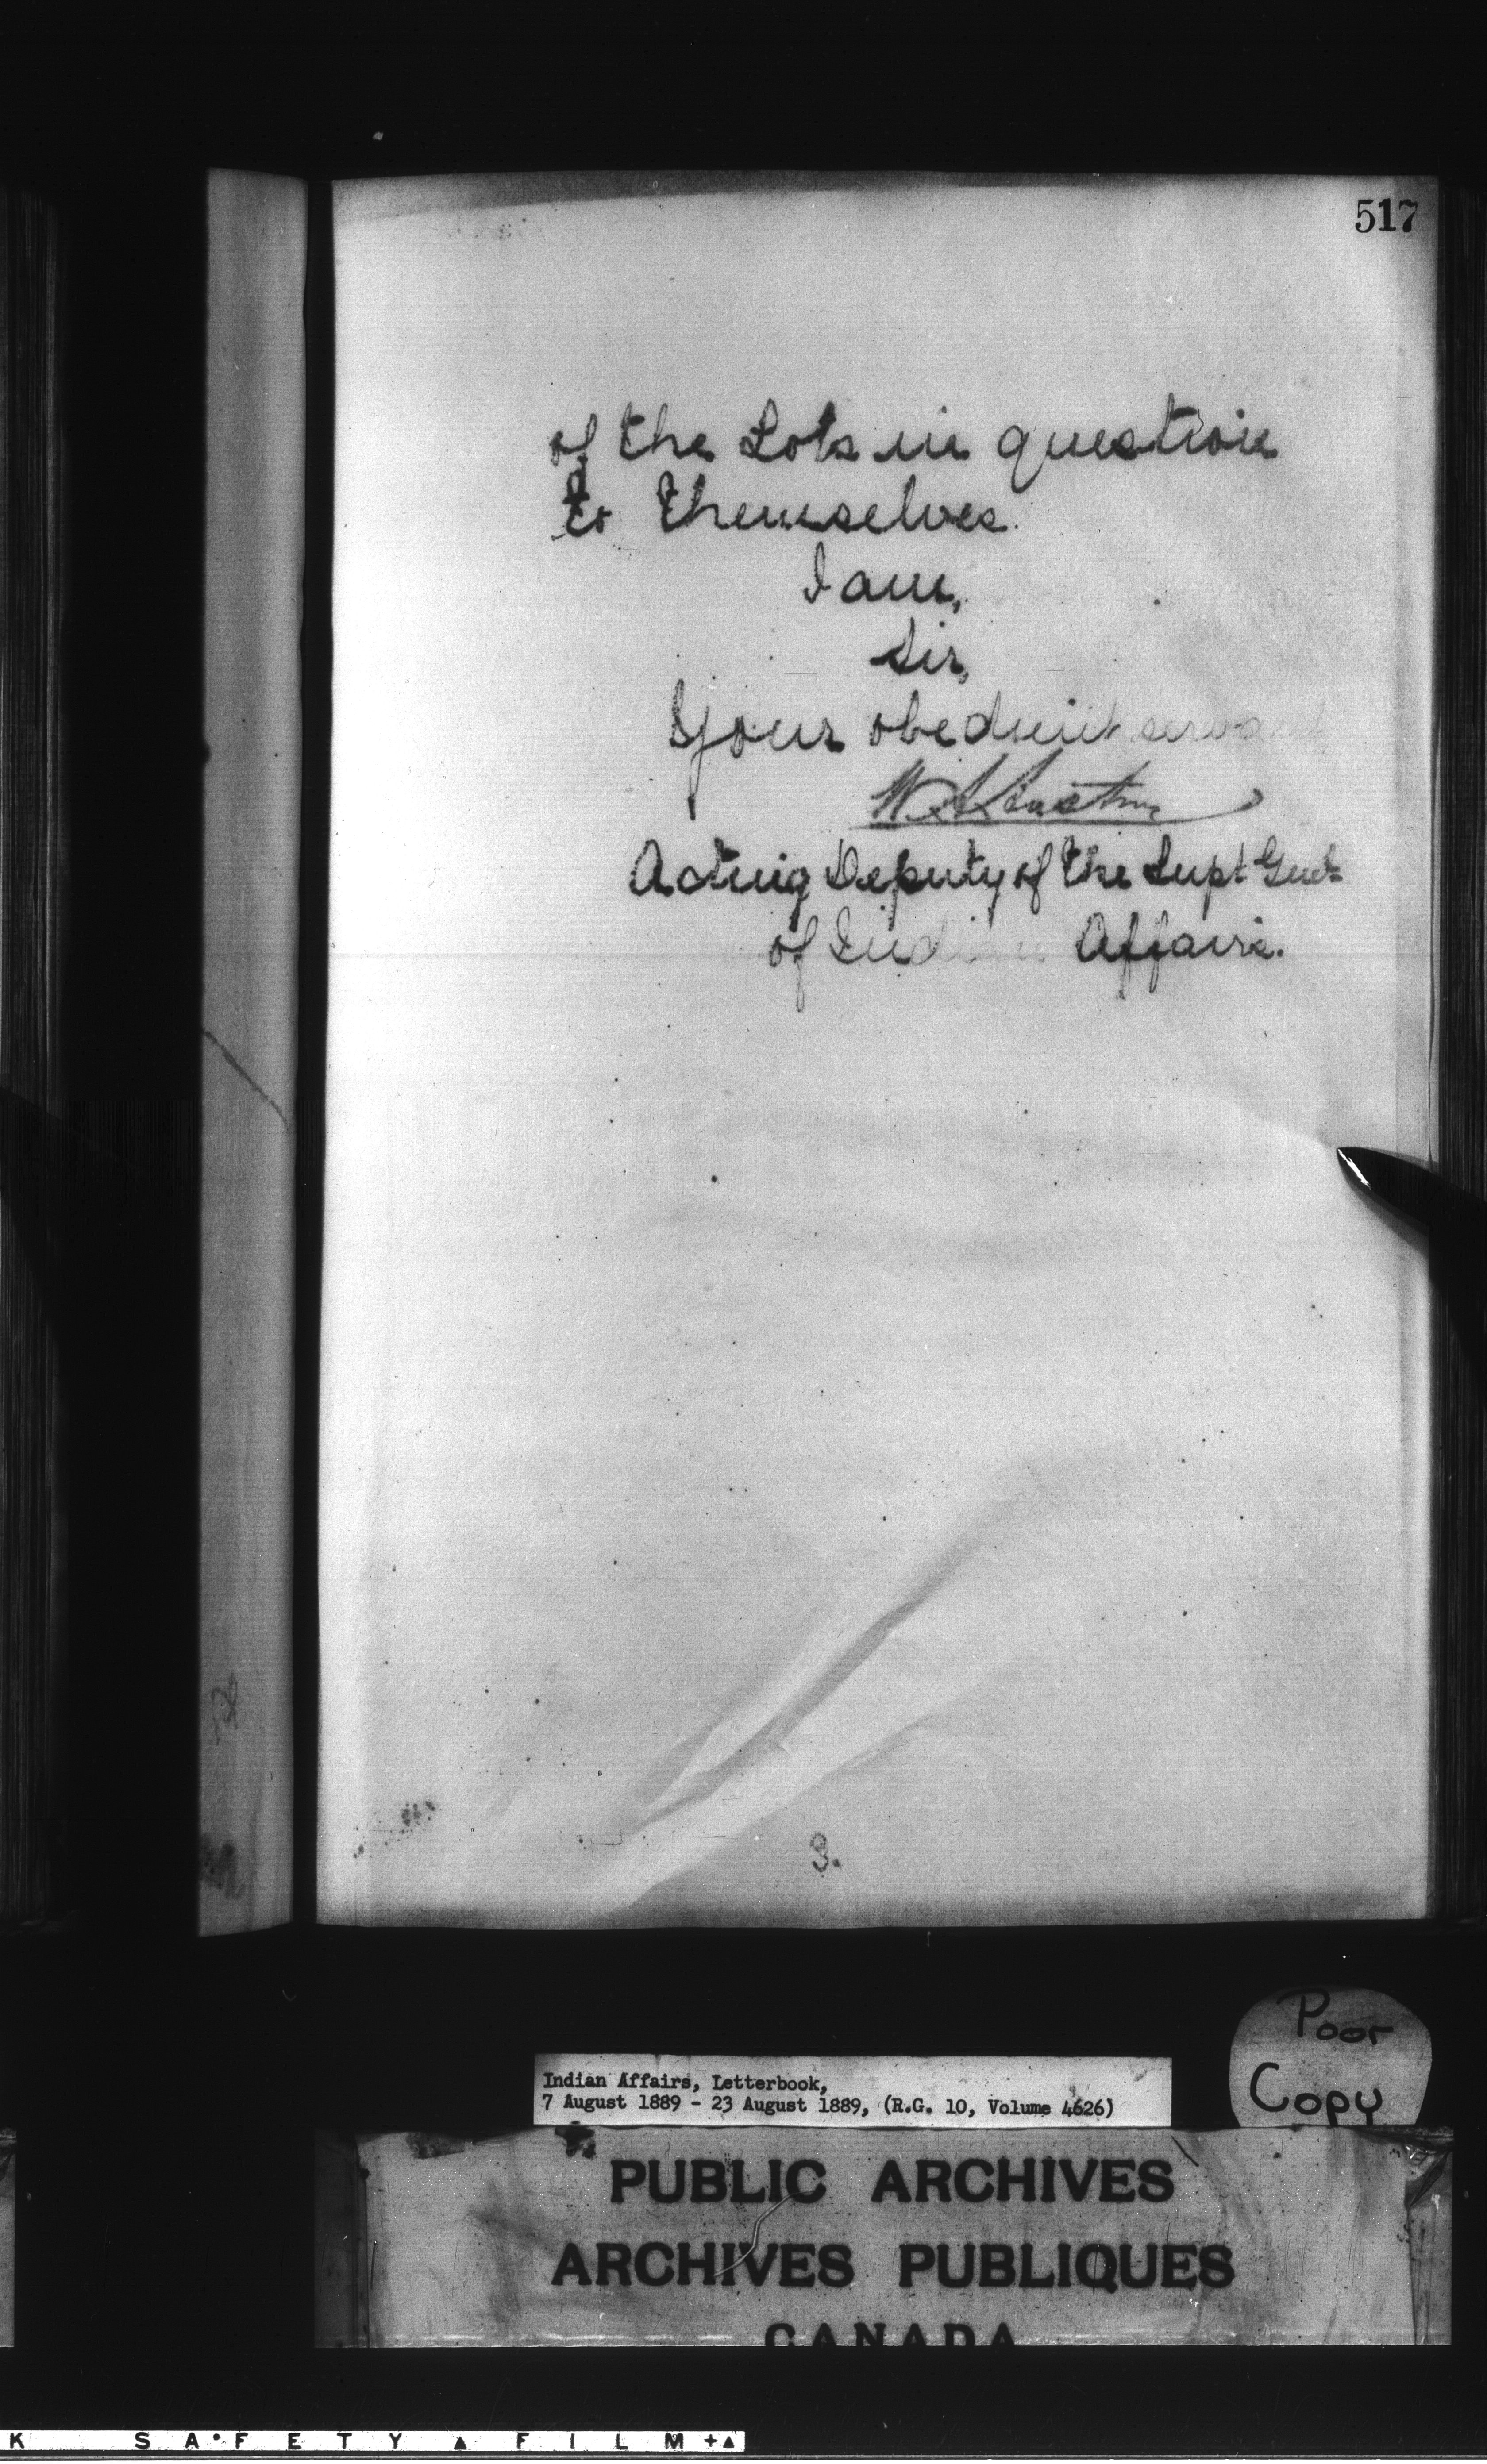 517
of the Lots in question
to themselves.
I am,
Sir,
Your obedient servant
Acting Deputy of the Supt Genl
of Indian Affairs.
3.
Poor
Copy
Indian Affairs, Letterbook,
7 August 1889 - 23 August 1889, (R.G. 10, Volume 4626)
PUBLIC ARCHIVES
ARCHIVES PUBLIQUES
CANADA
K SAFETY ▲ FILM +▲